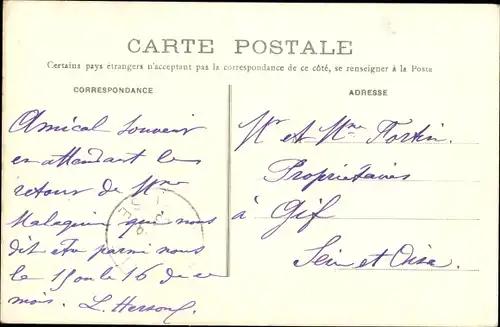 CARTE POSTALE
Certains pays étrangers n'acceptant pas la correspondance de ce côté, se renseigner à la Poste
CORRESPONDANCE
Amical Souvenir
en attendant le
retour de Mme
Malaquin qui nous
dit être parmi nous
le 15 ou le 16 de ce
mois.
ADRESSE
Mr et Mme Fortin.
Propriétaires
à Gif
Seine et Oise.